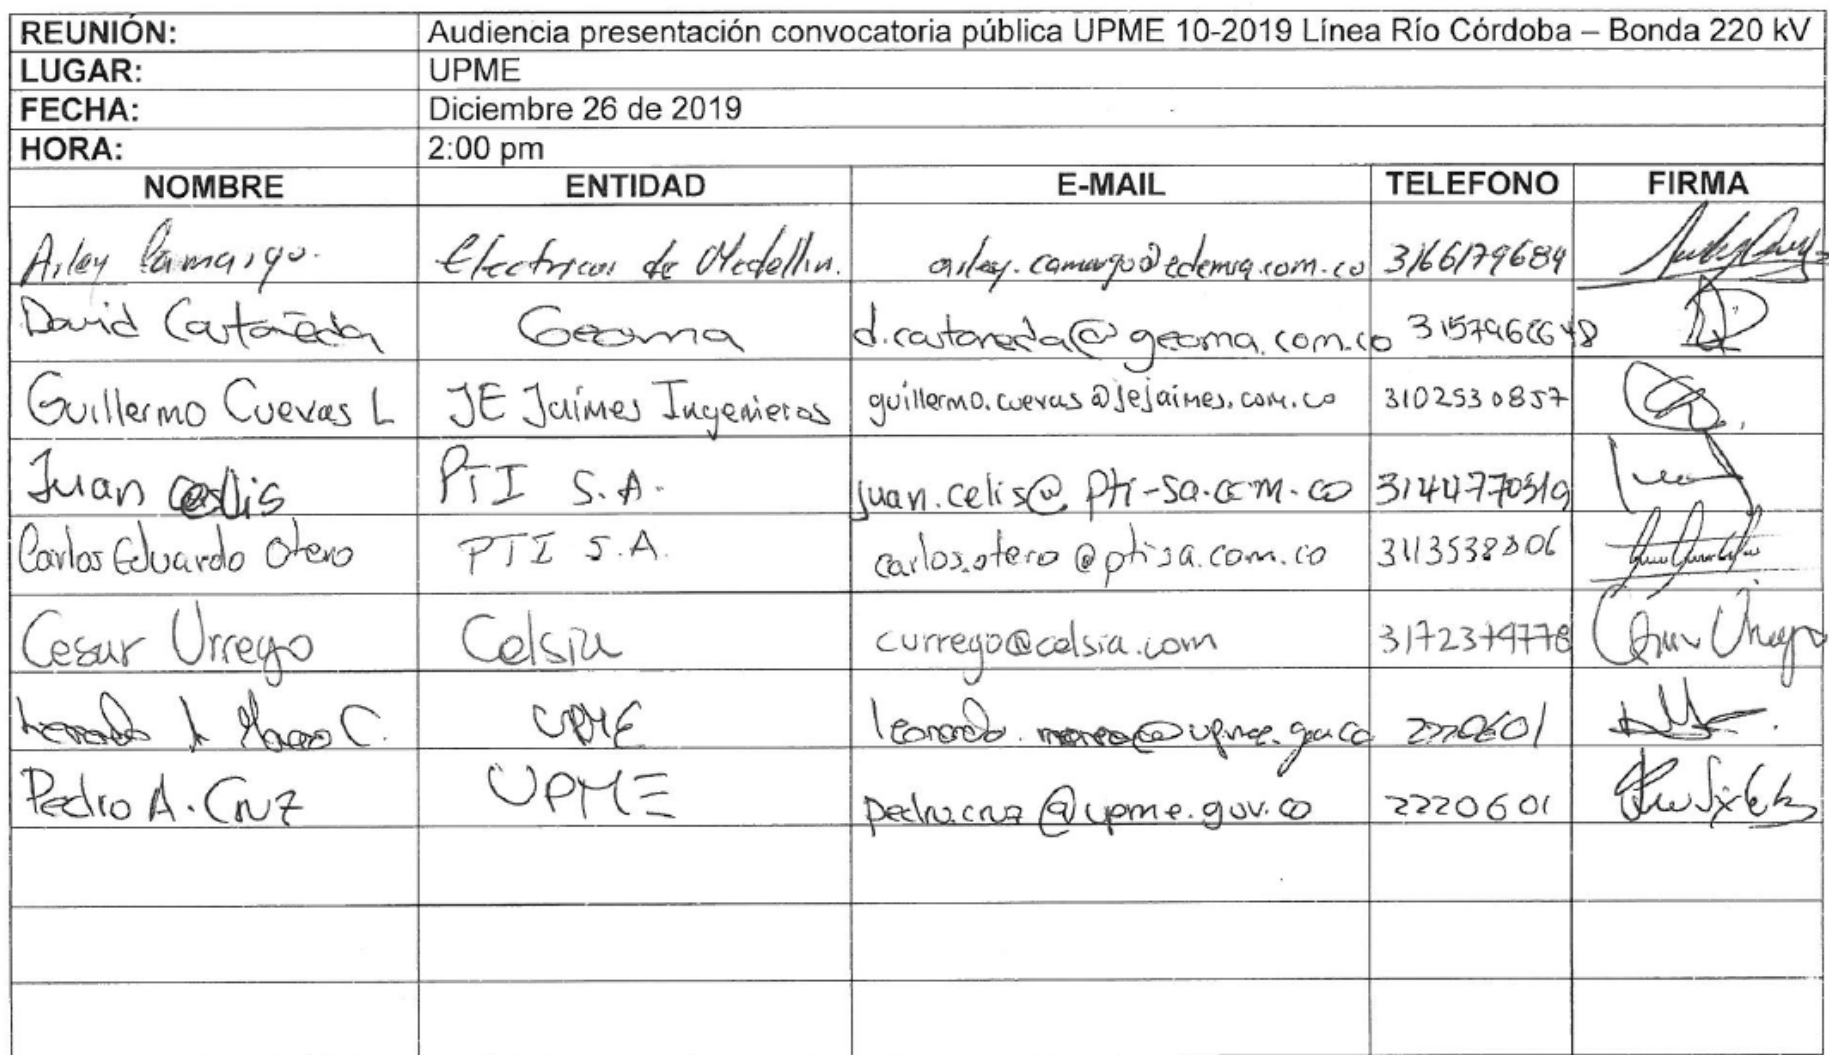 REUNIÓN: Audiencia presentación convocatoria pública UPME 10-2019 Línea Río Córdoba – Bonda 220 kV
LUGAR: UPME
FECHA: Diciembre 26 de 2019
HORA: 2:00 pm
NOMBRE ENTIDAD E-MAIL TELEFONO FIRMA
Arley Camargo. Electricas de Medellin. arley.camargo@edemsa.com.co 3166179684
David Castañeda Geoma d.castaneda@geoma.com.co 3157966648
Guillermo Cuevas L JE Jaimes Ingenieros guillermo.cuevas@jejaimes.com.co 3102530857
Juan Celis PTI S.A. juan.celis@pti-sa.com.co 3144770519
Carlos Eduardo Otero PTI S.A. carlos.otero@ptisa.com.co 3113538806
Cesar Urrego Celsia currego@celsia.com 3172374778 Cesar Urrego
Leonardo C. UPME 2220601
Pedro A. Cruz UPME pedro.cruz@upme.gov.co 2220601